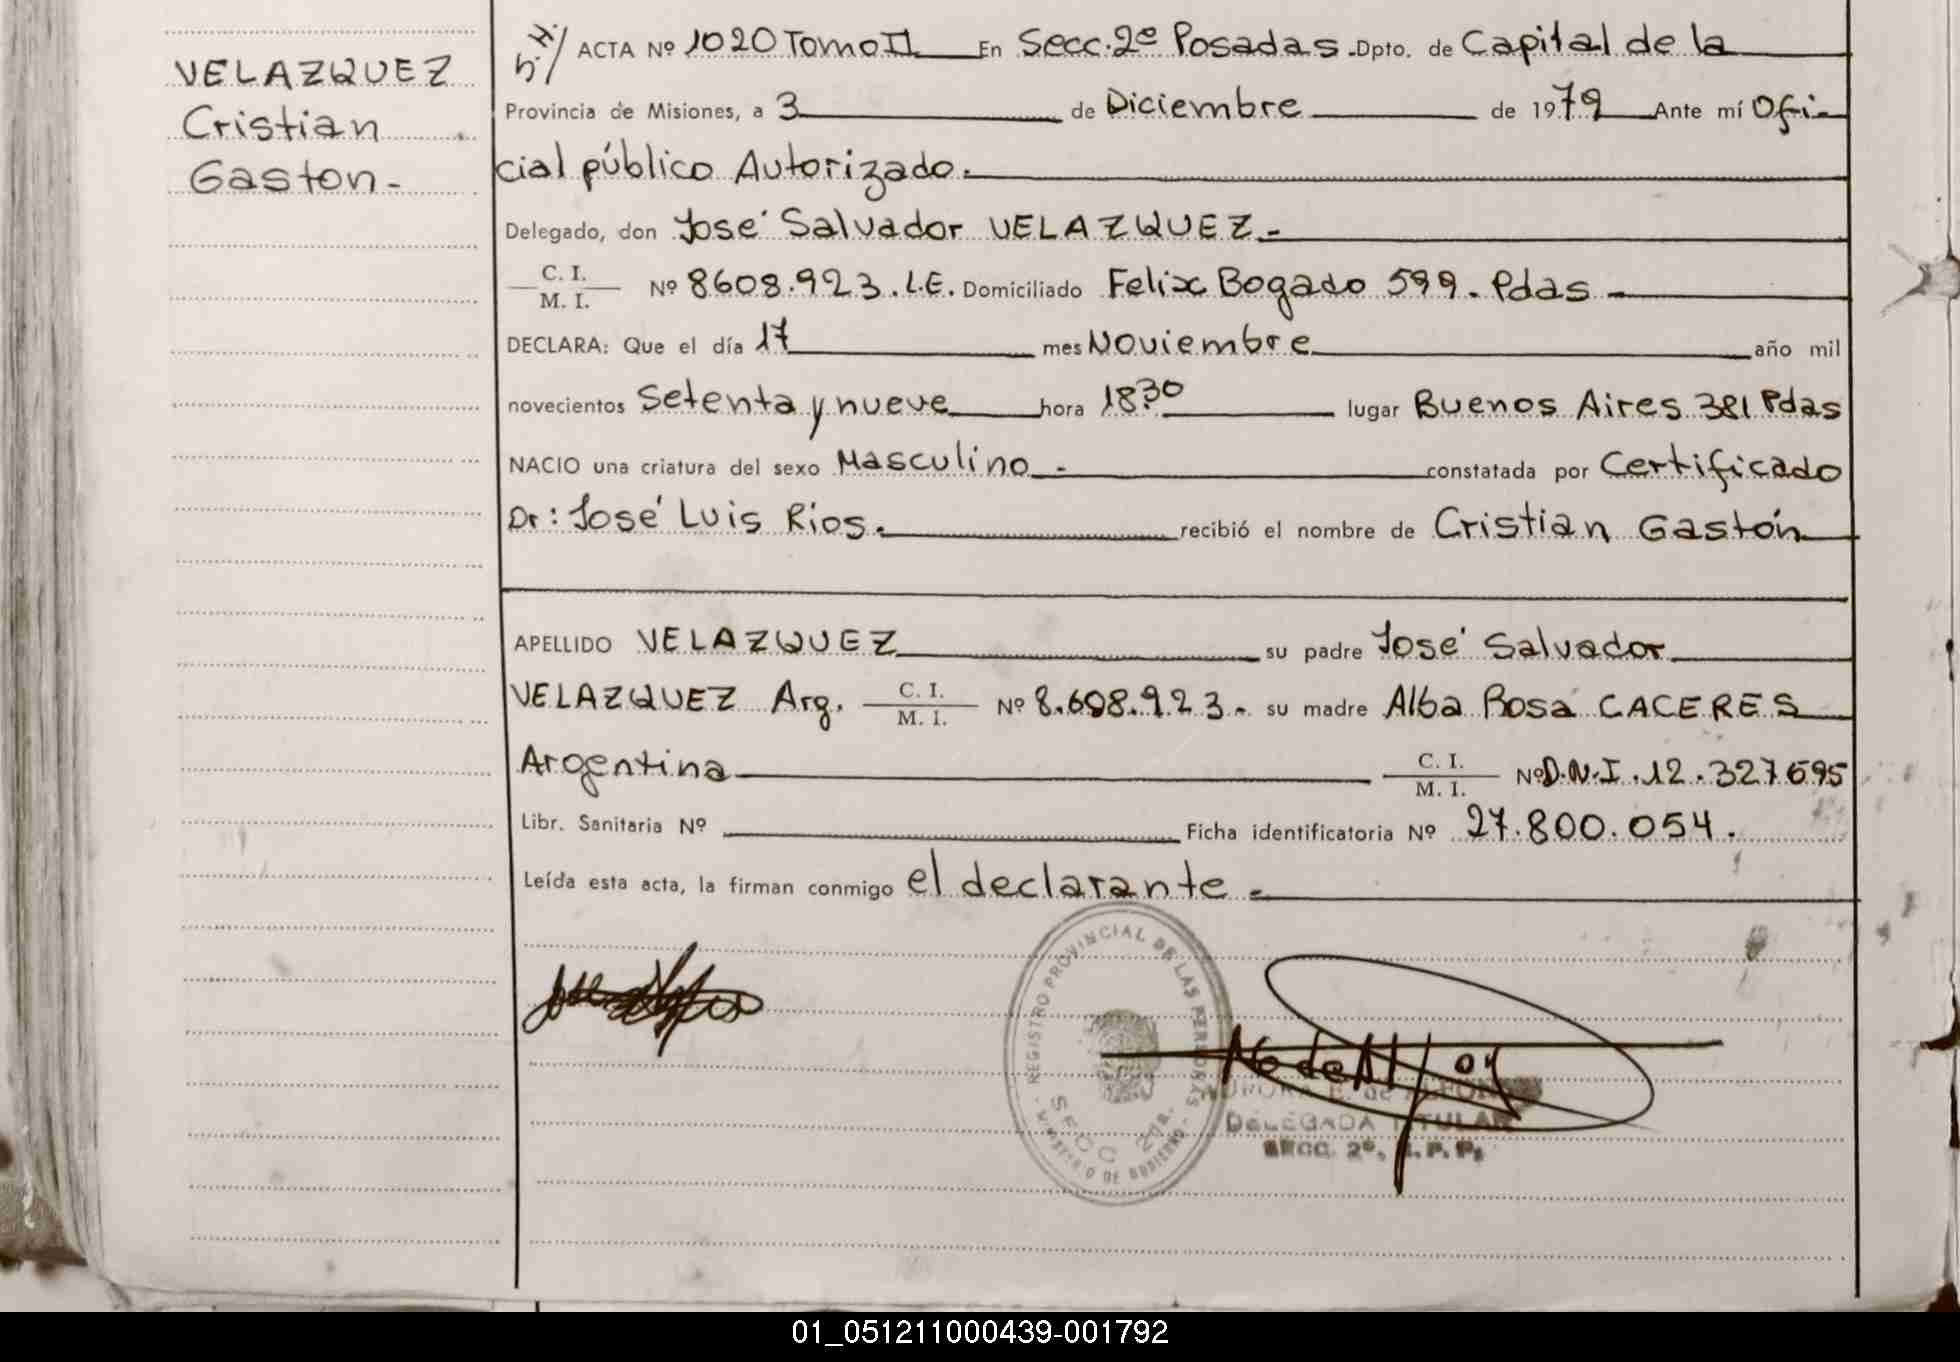 VELAZQUEZ
Cristian
Gaston-
ACTA Nº 1020 Tomo II En Secc. 2º Posadas. Dpto. de Capital de la
Provincia de Misiones, a 3 de Diciembre de 1979 Ante mí Ofi-
cial público Autorizado.
Delegado, don José Salvador VELAZQUEZ.-
C. I.
M. I. Nº 8608.923. L.E. Domiciliado Felix Bogado 599. Pdas -
DECLARA: Que el día 17 mes Noviembre año mil
novecientos Setenta y nueve hora 18:30 lugar Buenos Aires 381 Pdas
NACIO una criatura del sexo Masculino - constatada por Certificado
Dr: José Luis Rios. recibió el nombre de Cristian Gastón
APELLIDO VELAZQUEZ su padre José Salvador
VELAZQUEZ Arg. C. I. M. I. Nº 8.608.923.- su madre Alba Rosa CACERES
Argentina C. I. M. I. Nº D.N.I. 12.327695
Libr. Sanitaria Nº Ficha identificatoria Nº 27.800.054.
Leída esta acta, la firman conmigo el declarante.-
REGISTRO PROVINCIAL DE LAS PERSONAS
SECC. 2
MINISTERIO DE GOBIERNO
AURORA de
DELEGADA TITULAR
SECC. 2º,
01_051211000439-001792